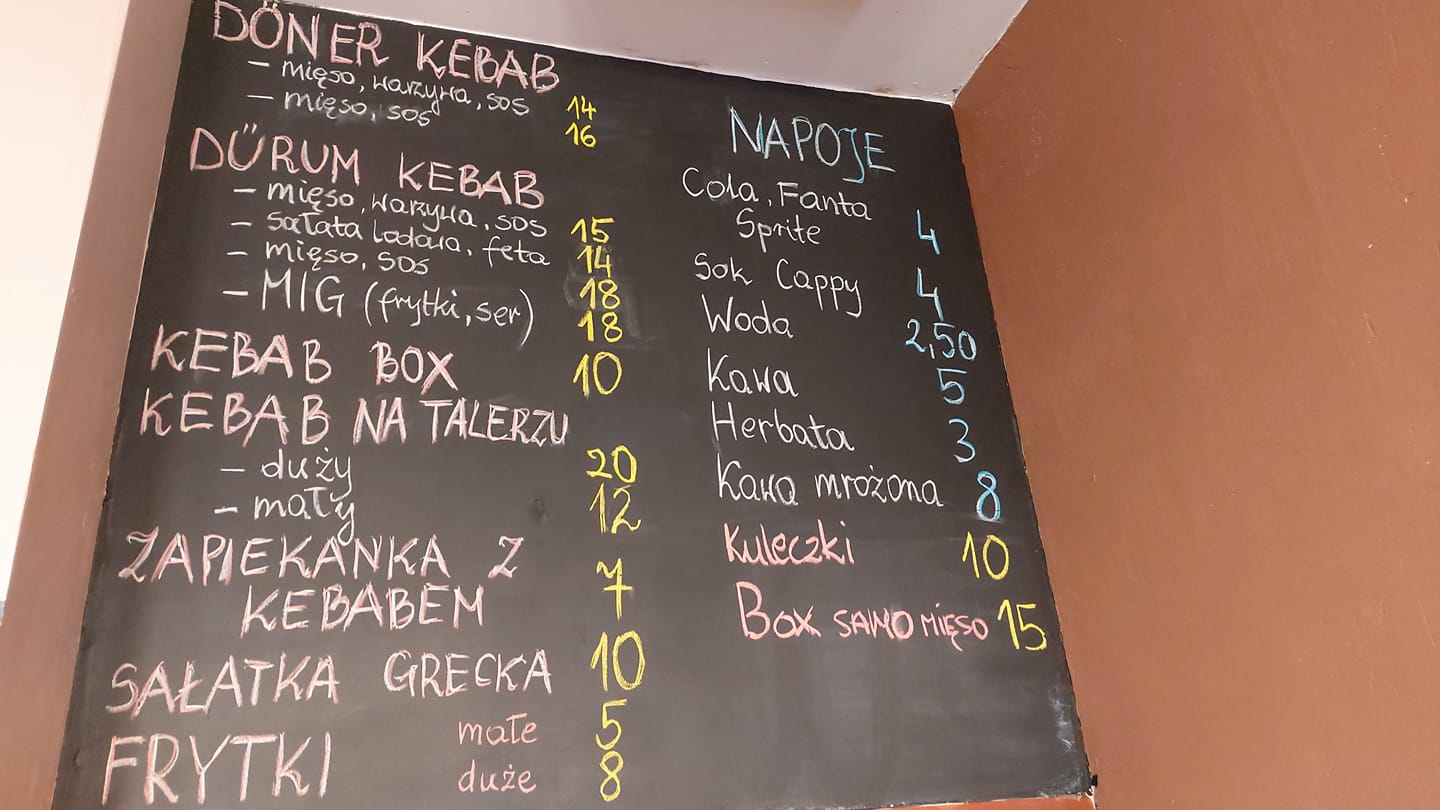 DÖNER KEBAB
- mięso, warzywa, sos 14
- mięso, sos 16
DÜRUM KEBAB
- mięso, warzywa, sos 15
- sałata lodowa, feta 14
- mięso, sos 18
- MIG (frytki, ser) 18
KEBAB BOX 10
KEBAB NA TALERZU
- duży 20
- mały 12
ZAPIEKANKA Z
KEBABEM 7
SAŁATKA GRECKA 10
FRYTKI małe 5
duże 8
NAPOJE
Cola, Fanta
Sprite 4
Sok Cappy 4
Woda 2,50
Kawa 5
Herbata 3
Kawa mrożona 8
Kuleczki 10
BOX SAMO MIĘSO 15